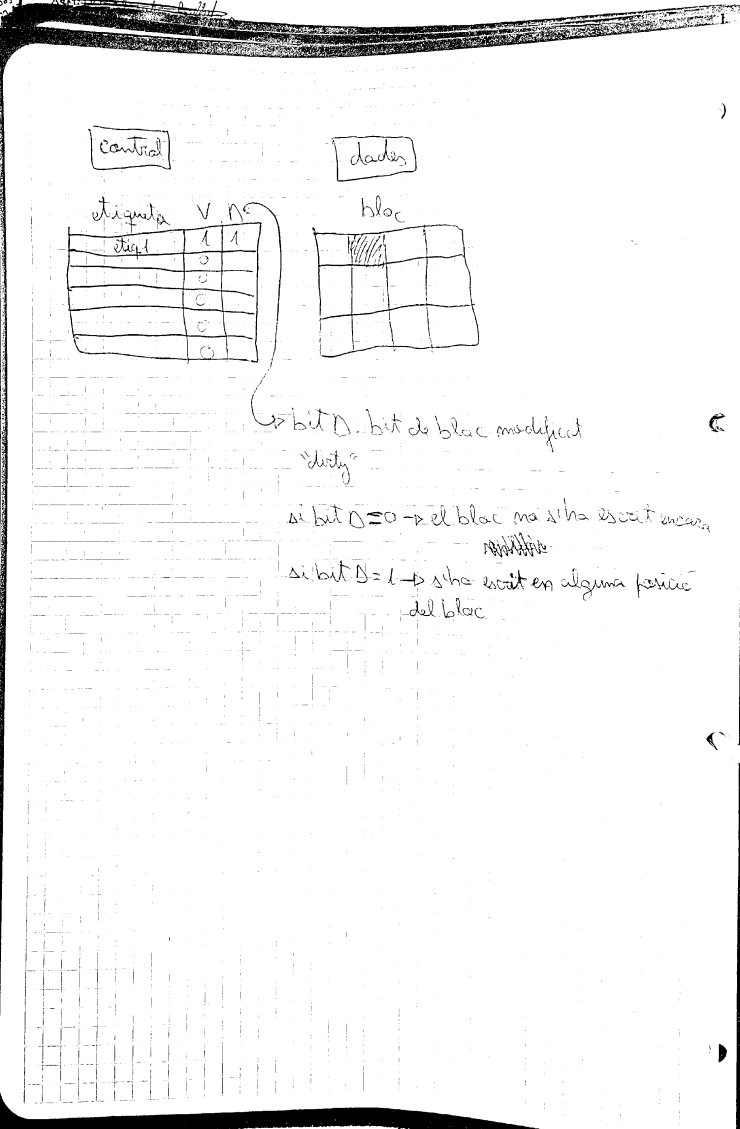 control
dades
etiqueta V D
bloc
etiq1 1 1
0
0
0
0
0
bit D. bit de bloc modificat
"dirty"
si bit D=0 → el bloc no s'ha escrit encara
si bit D=1 → s'ha escrit en alguna posició
del bloc